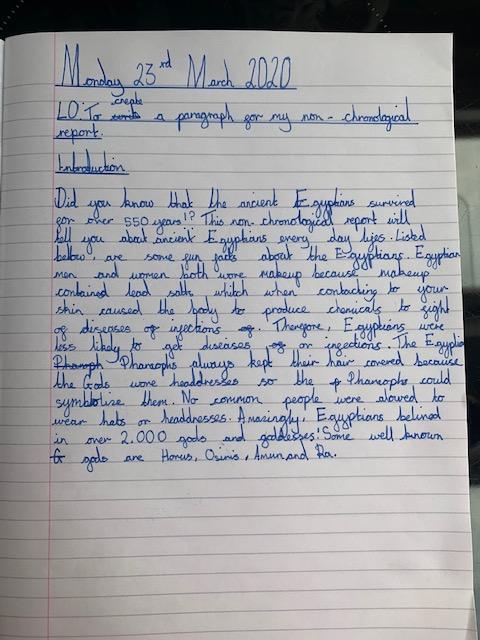 Monday 23rd March 2020
create
LO: To write a paragraph for my non-chronological
report.
Introduction
Did you know that the ancient Egyptians survived
for over 550 years!? This non chronological report will
tell you about ancient Egyptians every day lifes. Listed
below are some fun facts about the Egyptians. Egyptian
men and women both wore makeup because makeup
contained lead salts whitch when contacting to your
skin caused the body to produce chemicals to fight
of diseases of infections of. Therefore, Egyptians were
less likely to get diseases of or infections. The Egyptia
Pharaoh Pharaophs always kept their hair covered because
the Gods wore headdresses so the p Pharaophs could
symbolize them. No common people were alowed to
wear hats or headdresses. Amazingly, Egyptians belived
in over 2.000 gods and goddesses! Some well known
G gods are Horus, Osiris, Amun and Ra.